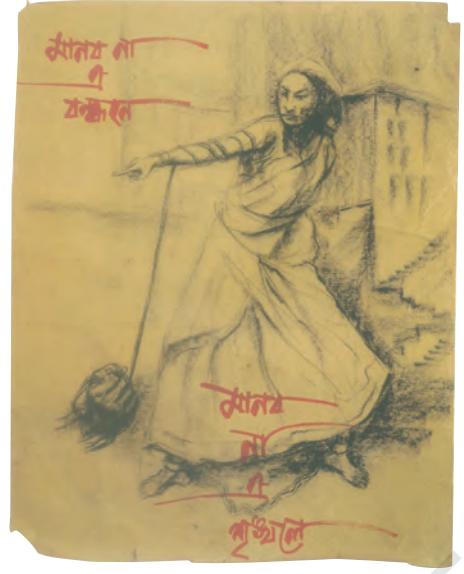 মানব না
এ
বন্ধনে
মানব
না
এ
শৃঙ্খলে